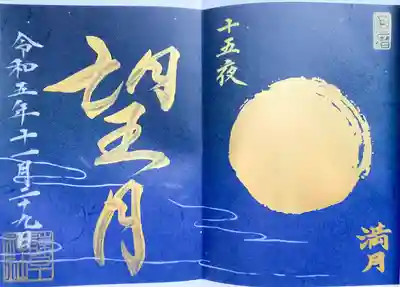 十五夜
満月
望月
令和五年十一月二十九日